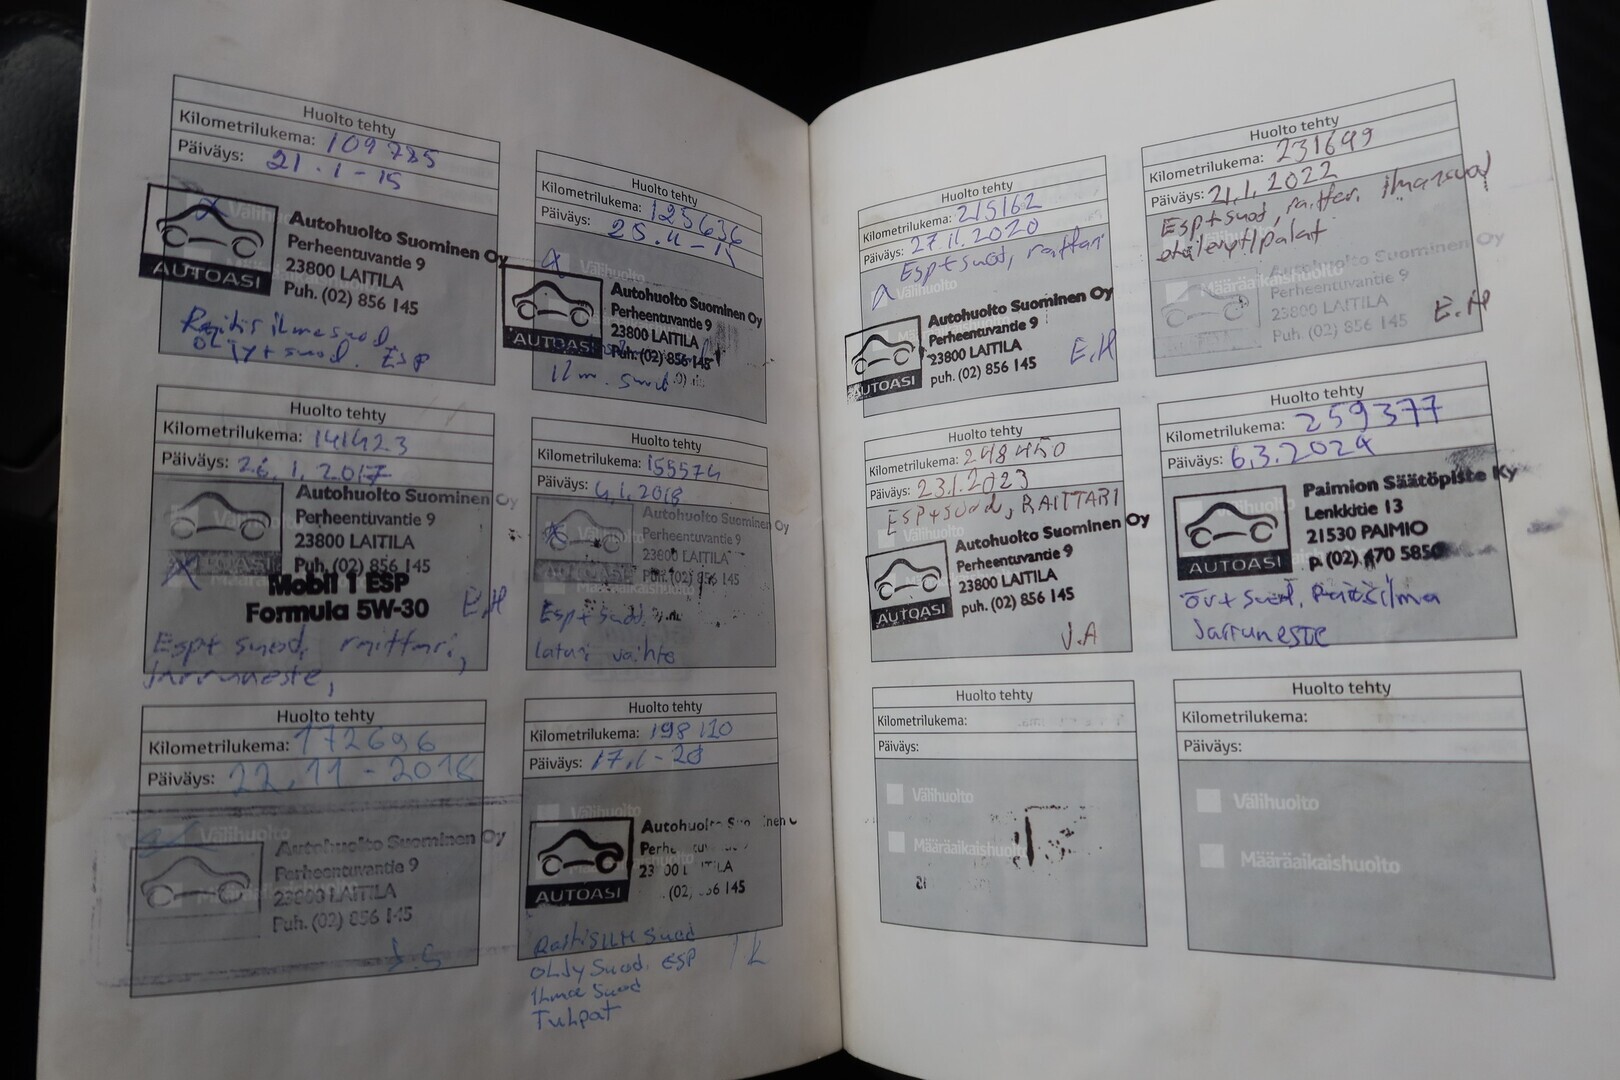 Huolto tehty
Kilometrilukema: 109785
Päiväys: 21.1-15
Välihuolto
Autohuolto Suominen Oy
Perheentuvantie 9
23800 LAITILA
Puh. (02) 856 145
AUTOASI
Raitis ilmasuod
öljy+suod. Esp
Huolto tehty
Kilometrilukema: 125636
Päiväys: 25.11-15
Välihuolto
Autohuolto Suominen Oy
Perheentuvantie 9
23800 LAITILA
Puh. (02) 856 145
AUTOASI
ilm. suod
Huolto tehty
Kilometrilukema: 141423
Päiväys: 26.1.2017
Autohuolto Suominen Oy
Perheentuvantie 9
23800 LAITILA
Puh. (02) 856 145
AUTOASI
Mobil 1 ESP
Formula 5W-30
E.H
Esp+ suod, raittari,
Jarruneste,
Huolto tehty
Kilometrilukema: 155574
Päiväys: 4.1.2018
Autohuolto Suominen Oy
Perheentuvantie 9
23800 LAITILA
Puh. (02) 856 145
Esp+ suod.
laturi vaihto
Huolto tehty
Kilometrilukema: 172696
Päiväys: 22.11-2018
Välihuolto
Autohuolto Suominen Oy
Perheentuvantie 9
23800 LAITILA
Puh. (02) 856 145
Huolto tehty
Kilometrilukema: 198110
Päiväys: 17.1-20
Välihuolto
Autohuolto Suominen
23 00 LAITILA
(02) 56 145
AUTOASI
RaitisILM suod
ÖLJy Suod. ESP
Ilma Suod
Tulpat
Huolto tehty
Kilometrilukema: 215162
Päiväys: 27.11.2020
Esp+suod, raittari
Välihuolto
Autohuolto Suominen Oy
Perheentuvantie 9
23800 LAITILA
puh. (02) 856 145
AUTOASI
E.H
Huolto tehty
Kilometrilukema: 231699
Päiväys: 21.1.2022
Esp+suod, raittari, ilmansuod
etäleyt/palat
Määräaikaishuolto
Autohuolto Suominen Oy
Perheentuvantie 9
23800 LAITILA
Puh. (02) 856 145
E.H
Huolto tehty
Kilometrilukema: 248450
Päiväys: 23.1.2023
Esp+suod, RAITTARI
Välihuolto
Autohuolto Suominen Oy
Perheentuvantie 9
23800 LAITILA
puh. (02) 856 145
AUTOASI
J.A
Huolto tehty
Kilometrilukema: 259377
Päiväys: 6.3.2024
Paimion Säätöpiste Ky
Lenkkitie 13
21530 PAIMIO
p. (02) 470 5850
AUTOASI
öv+suod, Raitisilma
Jarruneste
Huolto tehty
Kilometrilukema:
Päiväys:
Välihuolto
Määräaikaishuolto
Huolto tehty
Kilometrilukema:
Päiväys:
Välihuolto
Määräaikaishuolto